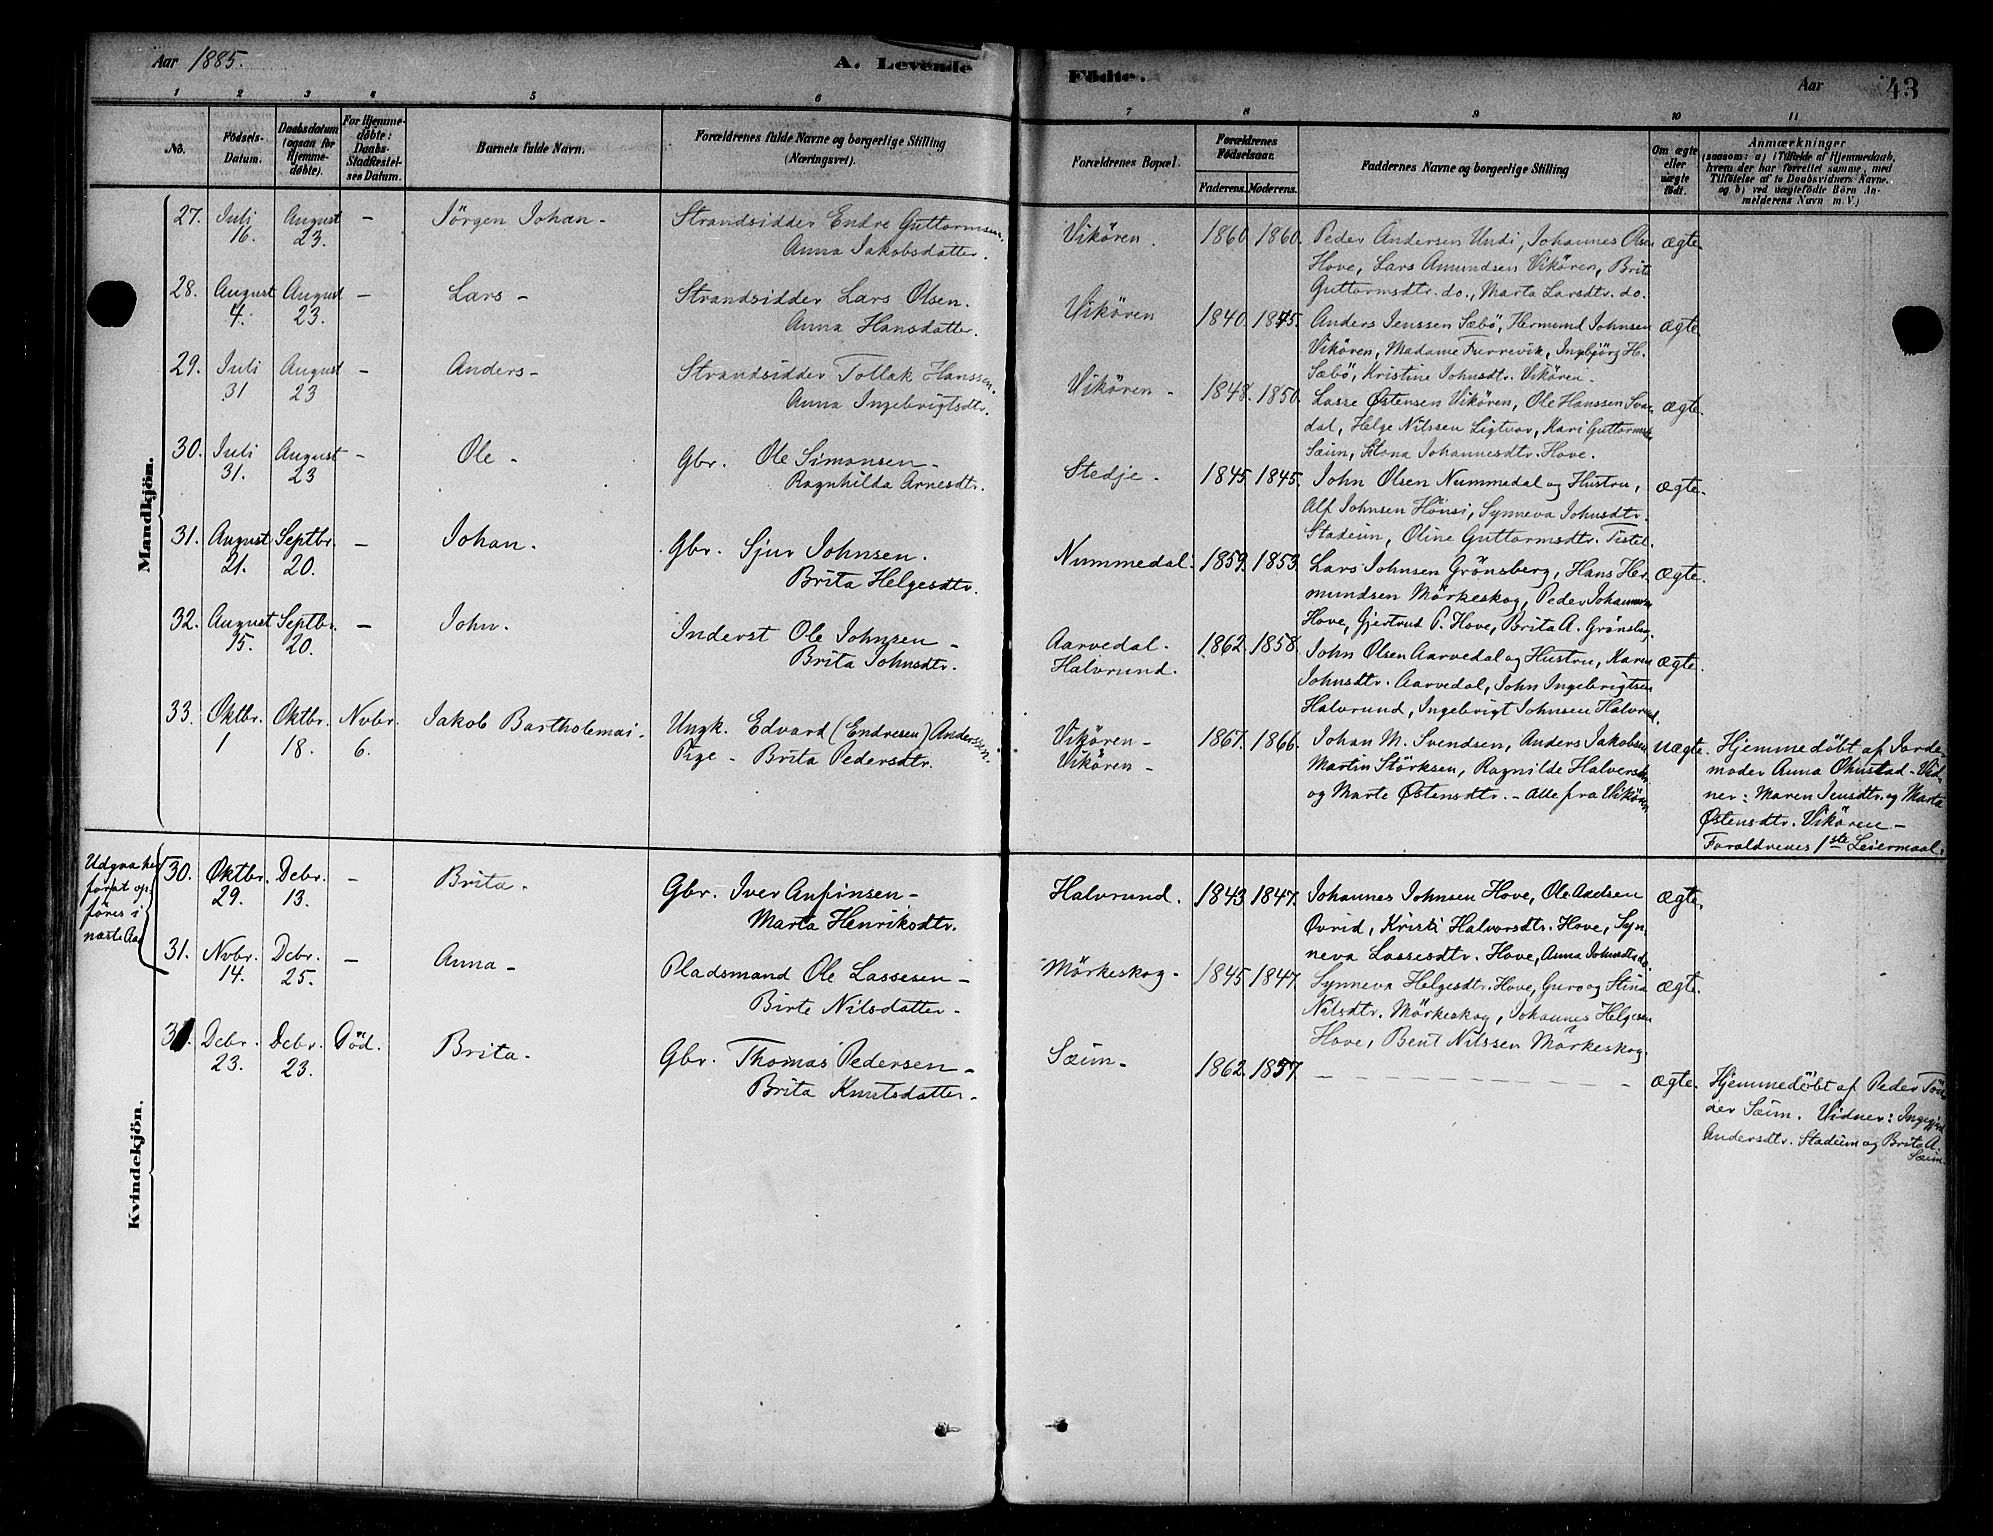 Aar 1885.
A. Levende
Födte.
Aar
43
1 2 3 4 5 6
7 8 9 10 11
No.
Födsels-
Datum.
Daabsdatum
(ogsaa for
Hjemme-
døbte).
For Hjemme-
døbte:
Daabs-
Stadfæstel-
ses Datum.
Barnets fulde Navn.
Forældrenes fulde Navne og borgerlige Stilling
(Næringsvei).
Forældrenes Bopæl.
Forældrenes
Födselsaar.
Faderens. Moderens.
Faddernes Navne og borgerlige Stilling
Om ægte
eller
uægte
födt.
Anmærkninger
(saasom: a) i Tilfælde af Hjemmedaab,
hvem der har forrettet samme, med
Tilföielse af to Daabsvidners Navne,
og b) ved uægtefödte Börn An-
melderens Navn m. V.)
Mandkjön.
27. Juli August – Jörgen Johan – Strandsidder Endre Guttormsen.
16. 23. Anna Jakobsdatter.
Vikören. 1860. 1860. Peder Andersen Undi, Johannes Olsen ægte.
Hove, Lars Amundsen Vikören, Brit
Guttormsdtr. do., Marta Larsdtr. do.
28. August August – Lars – Strandsidder Lars Olsen.
4. 23. Anna Hansdatter.
Vikören 1840. 1845. Anders Jenssen Sæbö, Hermund Johnsen ægte.
Vikören, Madame Furrevik, Ingebjörg H.
Sæbö, Kristine Johnsdtr. Vikören.
29. Juli August – Anders – Strandsidder Tollak Hanssen.
31 23 Anna Ingebrigtsdtr.
Vikören – 1848. 1850. Lasse Østensen Vikören, Ole Hanssen Svar- ægte.
dal, Helge Nilssen Ligtvor, Kari Guttormsdtr.
Sæim, Stona Johannesdtr. Hove.
30. Juli August – Ole – Gbr. Ole Simonsen –
31. 23 Ragnhilda Arnesdtr.
Stedje – 1845. 1845. John Olsen Nummedal og Hustru, ægte.
Alf Johnsen Hönsi, Synneva Johnsdtr.
Stadeim, Oline Guttormsdtr. Tistel.
31. August Septbr. – Johan. Gbr. Sjur Johnsen.
21. 20. Brita Helgesdtr.
Nummedal. 1859. 1853. Lars Johnsen Grönsberg, Hans Her- ægte.
mundsen Mörkeskog, Peder Johannessen
Hove, Gjertrud P. Hove, Brita A. Grönsber.
32. August Septbr. – John. Inderst Ole Johnsen –
15. 20. Brita Johnsdtr.
Aarvedal. 1862. 1858. John Olsen Aarvedal og Hustru, Karen ægte.
Halvrund. Johnsdtr. Aarvedal, John Ingebrigtsen
Halvrund, Ingebrigt Johnsen Halvrund.
33. Oktbr. Oktbr. Nvbr. Jakob Bartholemai. Ungk. Edvard (Endresen) Anderssen.
1 18. 6. Pige – Brita Pedersdtr.
Vikören – 1867. 1866. Johan M. Svendsen, Anders Jakobsen uægte. Hjemmedöbt af Jorde-
Vikören – Martin Störksen, Ragnilde Halversdtr. moder Anna Ohnstad – Vid-
og Marte Østensdtr. – Alle fra Vikören. ner: Maren Jensdtr. og Marta
Østensdtr. Vikören –
Forældrenes 1ste Leiermaal.
Kvindekjön.
næste Aar
30. Oktbr. Debr. – Brita. Gbr. Iver Anfinsen –
29. 13. Marta Henriksdtr.
Halvrund. 1843. 1847. Johannes Johnsen Hove, Ole Axelsen ægte.
Øvrid, Kristi Halvorsdtr. Hove, Syn-
neva Lassesdtr. Hove, Anna Johnsdtr. do.
31. Nvbr. Debr. – Anna – Pladsmand Ole Lassesen –
14. 25. Birte Nilsdatter –
Mörkeskog – 1845 1847. Synneva Helgesdtr. Hove, Guro og Stina ægte.
Nilsdtr. Mörkeskog, Johannes Helgesen
Hove, Bent Nilssen Mörkeskog.
Debr. Debr. Död. Brita. Gbr. Thomas Pedersen –
23. 23. Brita Knutsdatter –
Sæim – 1862. 1857. – – – ægte. Hjemmedöbt af Peder Tön-
der Sæim. Vidner: Ingegjerd
Andersdtr. Stadeim og Brita A.
Sæim.